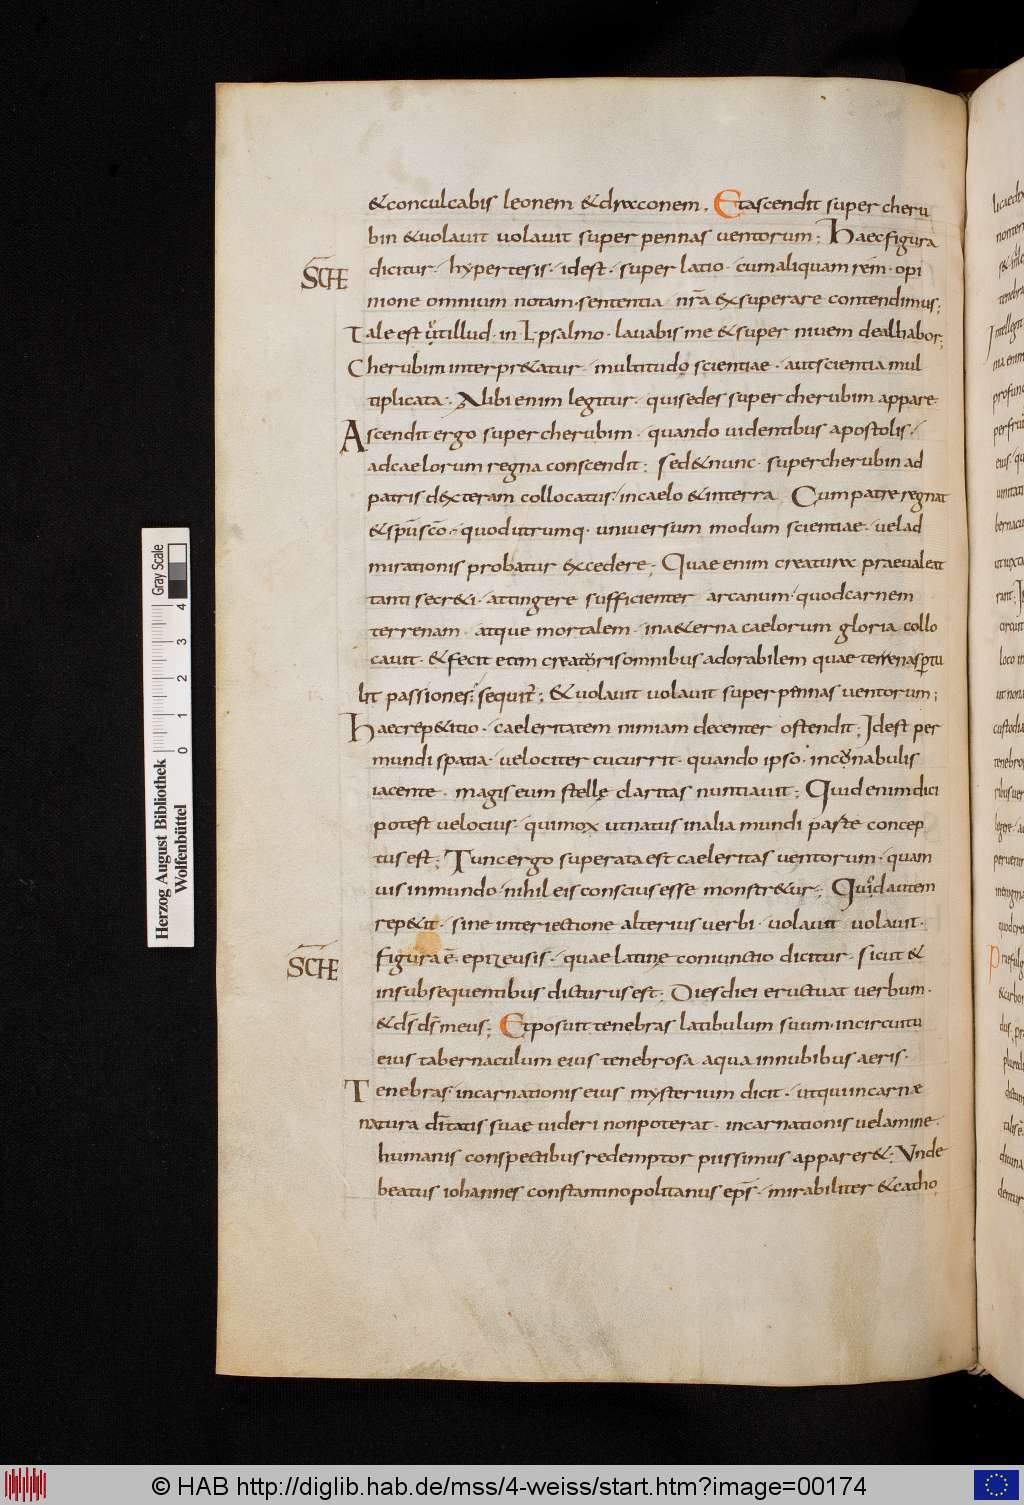 &conculcabis leonem &draconem. Etascendit super cheru
bin &uolauit uolauit super pennas uentorum; Haecfigura
SCHE
dicitur· hypertesis· idest· super latio· cumaliquam rem̅· opi
nione omnium notam· sententia nr̅a exsuperare contendimus;
Tale est ut illud· in· L· psalmo· lauabis me &super niuem dealbabor;
Cherubim interpr&atur· multitudo scientiae· aut scientia mul
tiplicata· Alibi enim legitur· qui sedes super cherubim appare·
Ascendit ergo super cherubim· quando uidentibus apostolis·
ad caelorum regna conscendit; sed&nunc· super cherubin ad
patris dexteram collocatus· in caelo &interra Cum patre regnat
&sp̅u s̅c̅o· quod utrumq· uniuersum modum scientiae· uel ad
mirationis probatur excedere; Quae enim creatura praeualeat
tanti secr&i· attingere sufficienter arcanum· quod carnem
terrenam· atque mortalem· in a&erna caelorum gloria collo
cauit· &fecit eam creaturis omnibus adorabilem quae terrenas ptu
lit passiones; sequit̅; &uolauit uolauit super pennas uentorum;
Haec rep&itio· caeleritatem nimiam decenter ostendit; Idest per
mundi spatia· uelociter cucurrit· quando ipso· incunabulis
iacente· magis eum stellę claritas nuntiauit; Quid enim dici
potest uelocius· qui mox ut natus in alia mundi parte concep
tus est; Tunc ergo superata est caeleritas uentorum· quam
uis in mundo· nihil eis conscius esse monstr&ur; Quod autem
rep&it· sine interiectione alterius uerbi· uolauit uolauit·
SCHE
figura e̅· epizeusis· quae latine coniunctio dicitur· sicut &
insubsequentibus dicturus est; Dies diei eructuat uerbum·
&d̅s d̅s meus; Et posuit tenebras latibulum suum· incircuitu
eius tabernaculum eius tenebrosa aqua innubibus aeris·
Tenebras· incarnationis eius mysterium dicit· ut qui in carnæ
natura diu̅tatis suae uideri non poterat· incarnationis uelamine·
humanis conspectibus redemptor piissimus apparer&; Vnde
beatus iohannes constantinopolitanus ep̅s· mirabiliter &catho
Herzog August Bibliothek
Wolfenbüttel
Gray Scale
0 1 2 3 4
© HAB http://diglib.hab.de/mss/4-weiss/start.htm?image=00174